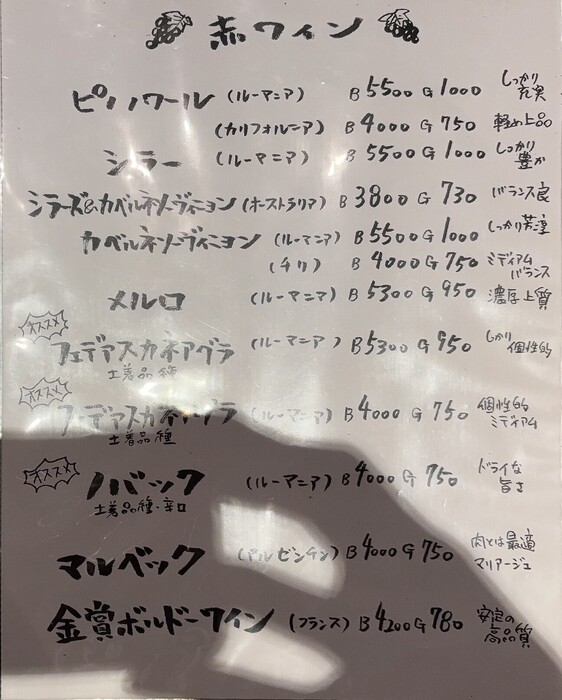 赤ワイン
ピノノワール (ルーマニア) B5500 G1000 しっかり充実
(カリフォルニア) B4000 G750 軽め上品
シラー (ルーマニア) B5500 G1000 しっかり豊か
シラーズ&カベルネソーヴィニヨン (オーストラリア) B3800 G730 バランス良
カベルネソーヴィニヨン (ルーマニア) B5500 G1000 しっかり芳淳
(チリ) B4000 G750 ミディアムバランス
メルロ (ルーマニア) B5300 G950 濃厚上質
オススメ
フェデアスカネアグラ (ルーマニア) B5300 G950 しっかり個性的
土着品種
オススメ
フェデアスカネアグラ (ルーマニア) B4000 G750 個性的ミディアム
土着品種
オススメ
ノバック (ルーマニア) B4000 G750 ドライな旨さ
土着品種・辛口
マルベック (アルゼンチン) B4000 G750 肉とは最適マリアージュ
金賞ボルドーワイン (フランス) B4200 G780 安定の高品質